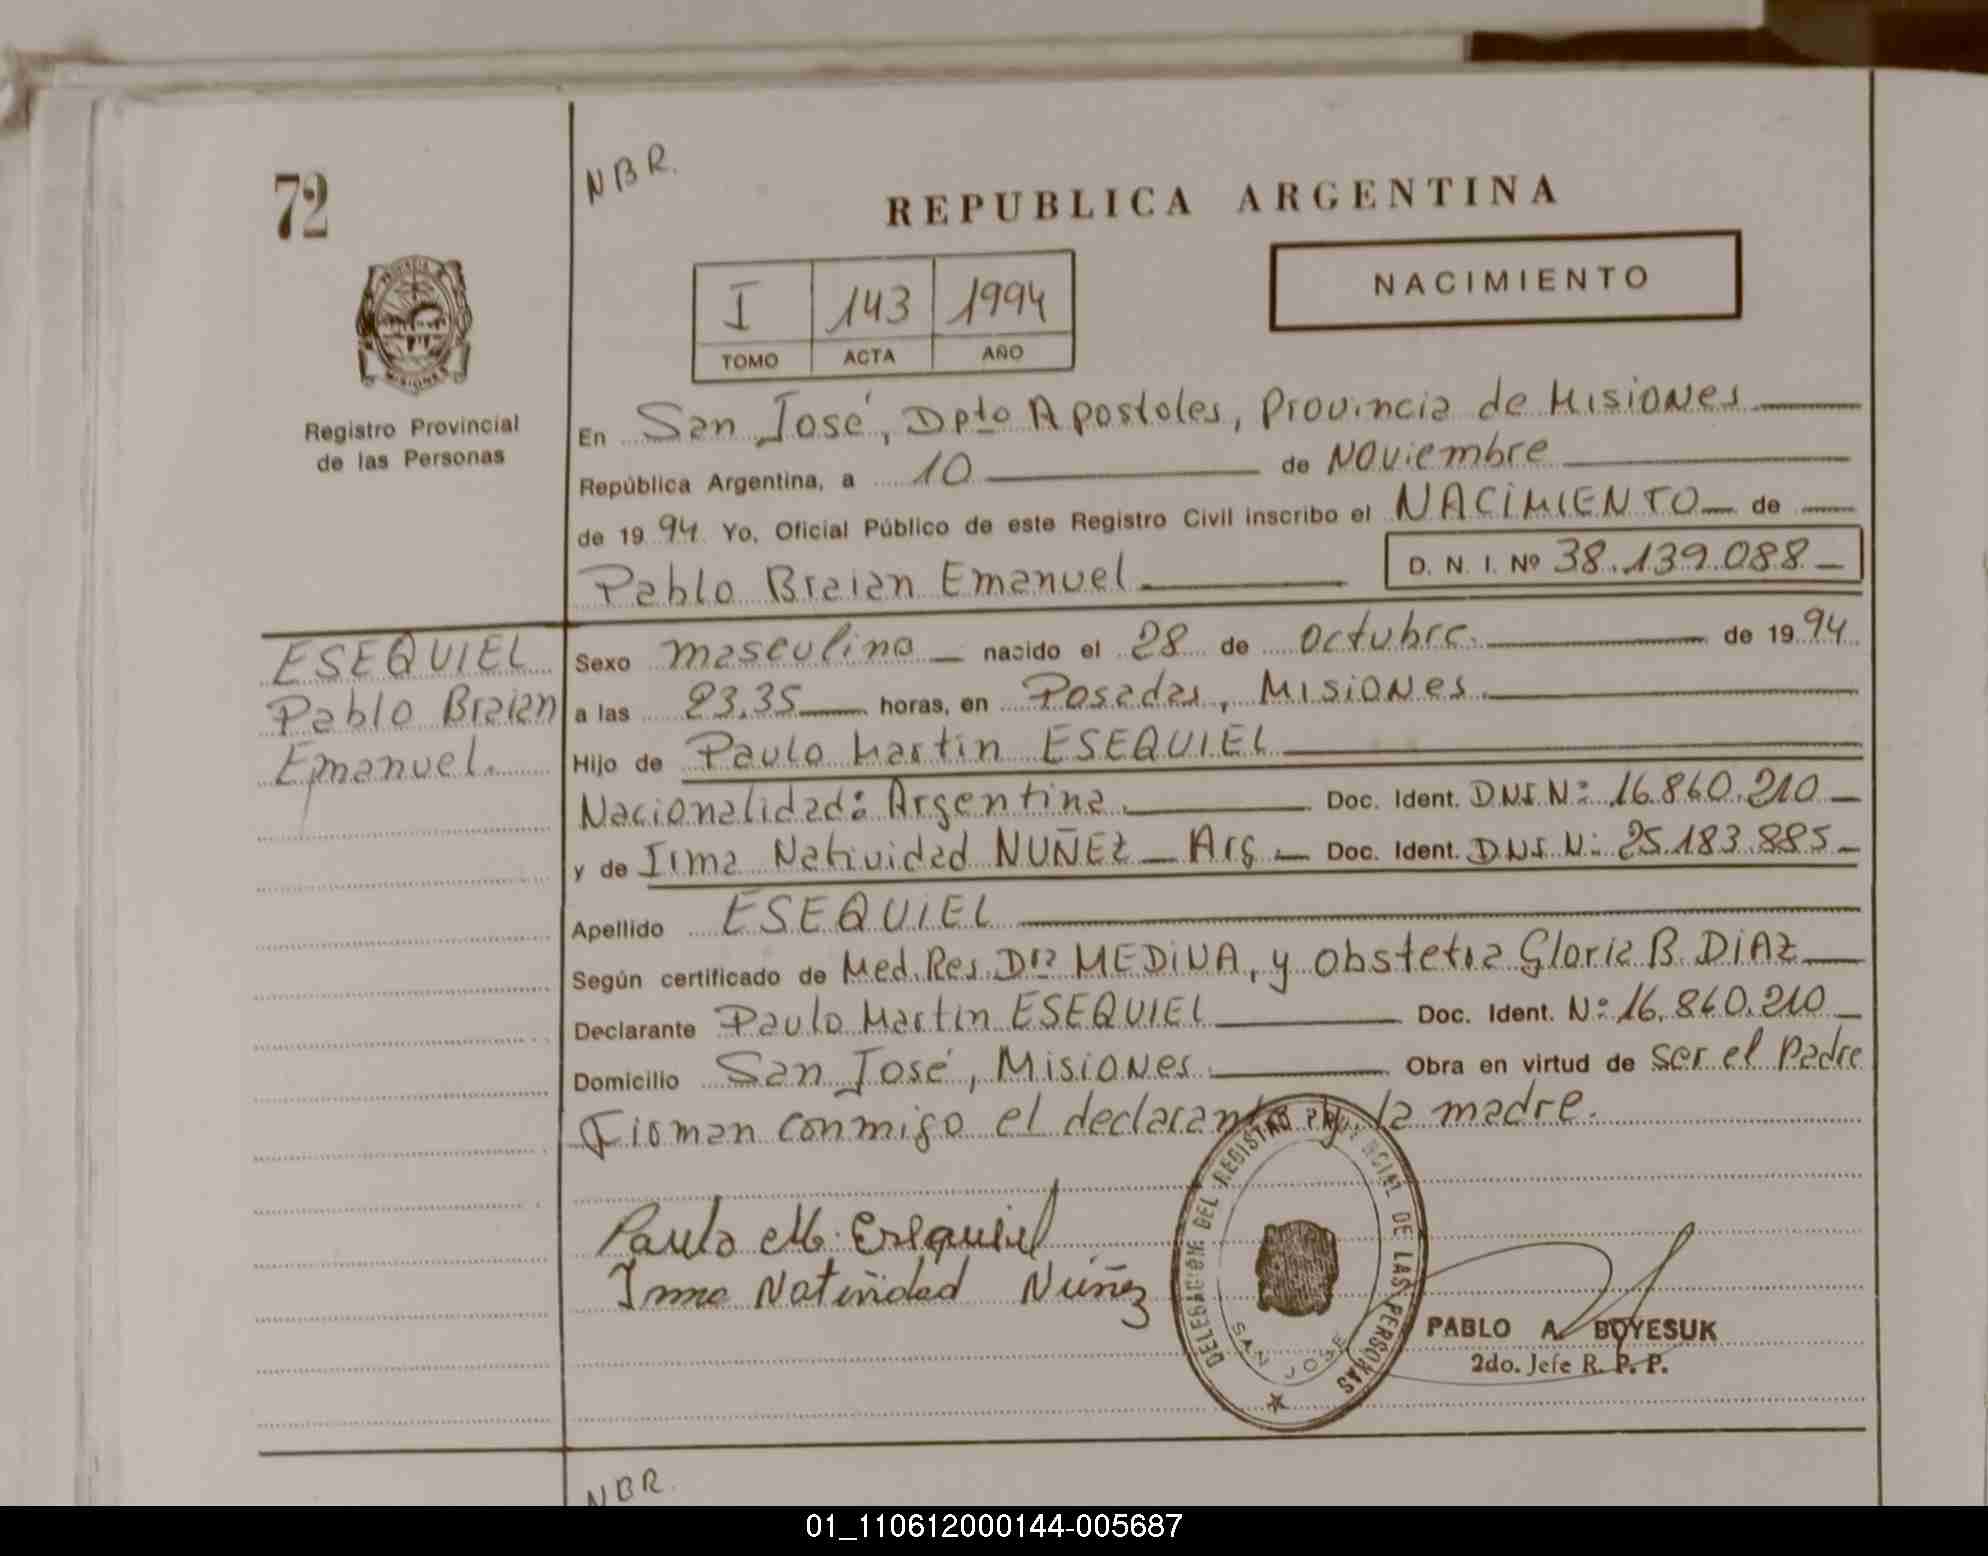 72
NBR.
REPUBLICA ARGENTINA
PROVINCIA
MISIONES
Registro Provincial
de las Personas
I 143 1994
TOMO ACTA AÑO
NACIMIENTO
En San José, Dpto Apostoles, Provincia de Misiones
República Argentina, a 10 de Noviembre
de 1994 Yo, Oficial Público de este Registro Civil inscribo el NACIMIENTO de
Pablo Braian Emanuel D. N. I. Nº 38.139.088
ESEQUIEL
Pablo Braian
Emanuel.
Sexo masculino nacido el 28 de octubre. de 1994
a las 23,35 horas, en Posadas, Misiones
Hijo de Paulo Martin ESEQUIEL
Nacionalidad: Argentina Doc. Ident. DNI N: 16.860.210
y de Irma Natividad NUÑEZ Arg Doc. Ident. DNI N: 25.183.885
Apellido ESEQUIEL
Según certificado de Med. Res. Dra MEDINA, y obstetra Gloria B. DIAZ
Declarante Paulo Martin ESEQUIEL Doc. Ident. N: 16.860.210
Domicilio San José, Misiones Obra en virtud de ser el Padre
Firman conmigo el declarante y la madre.
Paulo M. Esequiel
Irma Natividad Núñez
DELEGACION DEL REGISTRO PROVINCIAL DE LAS PERSONAS
SAN JOSE
PABLO A. BOYESUK
2do. Jefe R. P. P.
NBR.
01_110612000144-005687